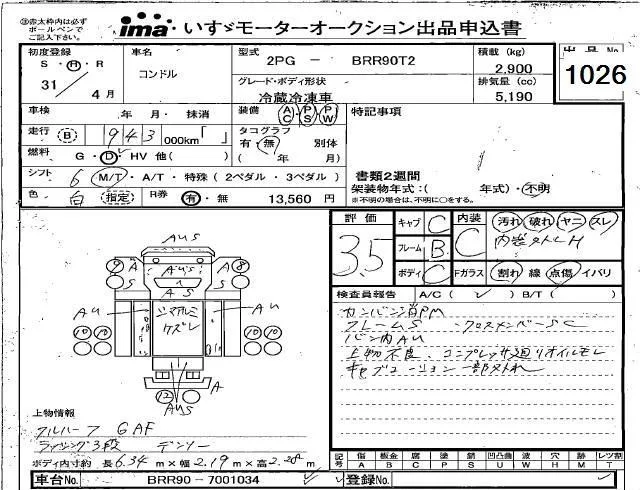 ㊟赤太枠内は必ず
ボールペンで
ご記入下さい。
ima いすゞモーターオークション出品申込書
初度登録 車名 型式 2PG － BRR90T2 積載 (kg) 2,900 出品No
S・H・R 31／4月 コンドル グレード・ボディ形状 冷蔵冷凍車 排気量 (cc) 5,190 1026
車検 年 月・抹消 装備 AC・PS・PW 特記事項
走行 B 943 000km「 」 タコグラフ 有・無 別体
燃料 G・D・HV 他( ) ( 年 月)
シフト 6 M/T・A/T・特殊(2ペダル・3ペダル) 書類2週間
色 白 指定 R券 有・無 13,560 円 架装物年式:( 年式)・不明
※不明の場合は、不明に○をする。
評価 3.5 キャブ C 内装 C 汚れ 破れ ヤニ スレ
フレーム B
ボディ C Fガラス 割れ 線 点傷 イバリ
検査員報告 A/C( ✓ ) B/T( )
フレームS ・クロスメンバーSC
バン内AU
上物不良、コンプレッサ廻りオイルモレ
AUS
⑨ A AUS A ⑧
S A S S
AU AU
⑩ ⑩ ⑩ ⑩
⑫ A
AUS
上物情報
GAF
デンソー
ボディ内寸約 長6.34m×幅2.19m×高2.28m
記号 傷 板金 腐 塗 錆 凹凸曲 波 穴 時 レツ割
A B C P S U W H M T
車台No. BRR90－7001034 登録No.